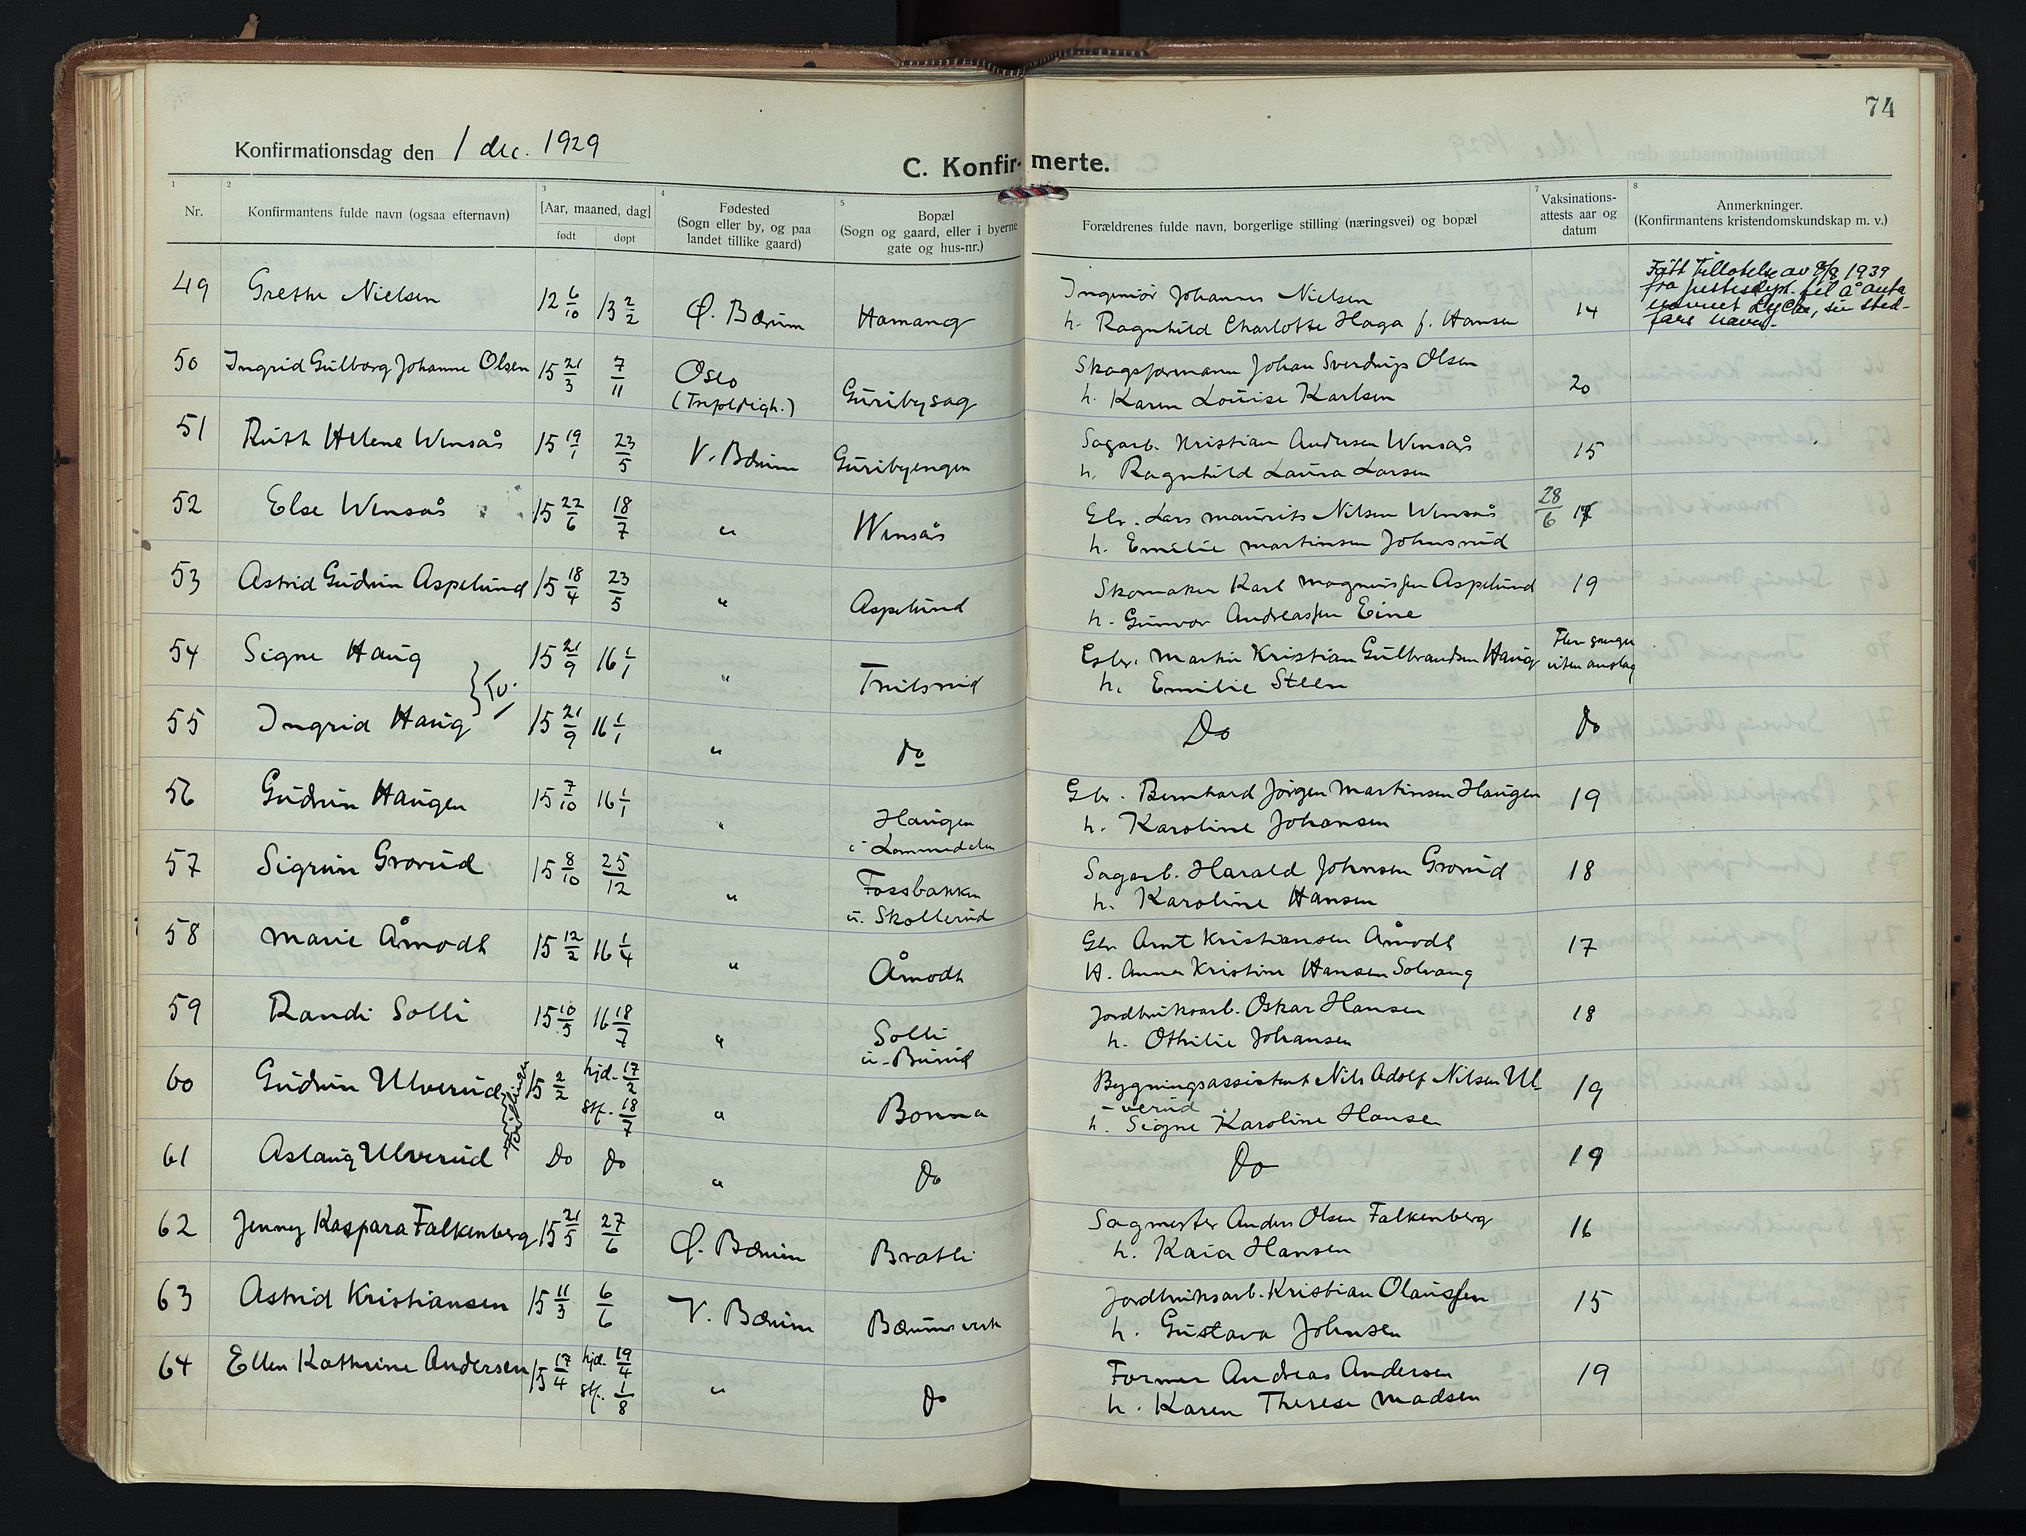 74
Konfirmationsdag den 1 dec. 1929
C. Konfirmerte.
1 2 3 4 5 7 8
Nr.
Konfirmantens fulde navn (ogsaa efternavn)
[Aar, maaned, dag]
født døpt
Fødested
(Sogn eller by, og paa
landet tillike gaard)
Bopæl
(Sogn og gaard, eller i byerne
gate og hus-nr.)
Forældrenes fulde navn, borgerlige stilling (næringsvei) og bopæl
Vaksinations-
attests aar og
datum
Anmerkninger.
(Konfirmantens kristendomskundskap m. v.)
49 Grethe Nielsen 12 6/10 13 2/2 Ø. Bærum Hamang Ingeniør Johannes Nielsen 14
h. Ragnhild Charlotte Haga f. Hansen
Fått tillatelse av 1939
fra justisdept. til å anta
navnet Lyche, sin sted-
fars navn.
50 Ingrid Gulborg Johanne Olsen 15 21/3 7/11 Oslo Guribysag Skogsformann Johan Sverdrup Olsen 20
(Trefoldigh.) h. Karen Louise Karlsen
51 Ruth Helene Wensås 15 19/1 23/5 V. Bærum Guribyengen Sagarb. Kristian Andersen Wensås 15
h. Ragnhild Laura Larsen
52 Else Wensås 15 22/6 18/7 " Wensås Gbr. Lars Maurits Nilsen Wensås 28/6
h. Emilie Martinsen Johnsrud
53 Astrid Gudrun Aspelund 15 18/4 23/5 " Aspelund Skomaker Karl Magnussen Aspelund 19
h. Gunvor Andreassen Eine
54 Signe Haug 15 21/9 16 1/1 " Trulsrud Gbr. Martin Kristian Gulbrandsen Haug Flere ganger
h. Emilie Steen uten anslag
} Tv.
55 Ingrid Haug 15 21/9 16 1/1 " do Do do
56 Gudrun Haugen 15 7/10 16 1/1 " Haugen Gbr. Bernhard Jørgen Martinsen Haugen 19
i Lommedalen h. Karoline Johansen
57 Sigrun Grorud 15 8/10 25/12 " Fossbakken Sagarb. Harald Johnsen Grorud 18
u. Skollerud h. Karoline Hansen
58 Marie Åmodt 15 12/2 16 1/4 " Åmodt Gbr Arnt Kristiansen Åmodt 17
H. Anna Kristine Hansen Solvang
59 Randi Solli 15 10/5 16 18/7 " Solli Jordbruksarb. Oskar Hansen 18
u. Burud h. Othilie Johansen
60 Gudrun Ulverud 15 2/2 hjd. 17/2 " Bonna Bygningsassistent Nils Adolf Nilsen Ul- 19
stf. 18/7 -verud
h. Signe Karoline Hansen
Tvillinger
61 Aslaug Ulverud Do do " do do 19
62 Jenny Kaspara Falkenberg 15 21/5 27/6 Ø. Bærum Bratli Sagmester Anders Olsen Falkenberg 16
h. Kaia Hansen
63 Astrid Kristiansen 15 11/3 6/6 V. Bærum Bærums verk Jordbruksarb. Kristian Olaussen 15
h. Gustava Johnsen
64 Ellen Kathrine Andersen 15 17/4 hjd. 19/4 " do Former Andreas Andersen 19
stf. 1/8 h. Karen Therese Madsen